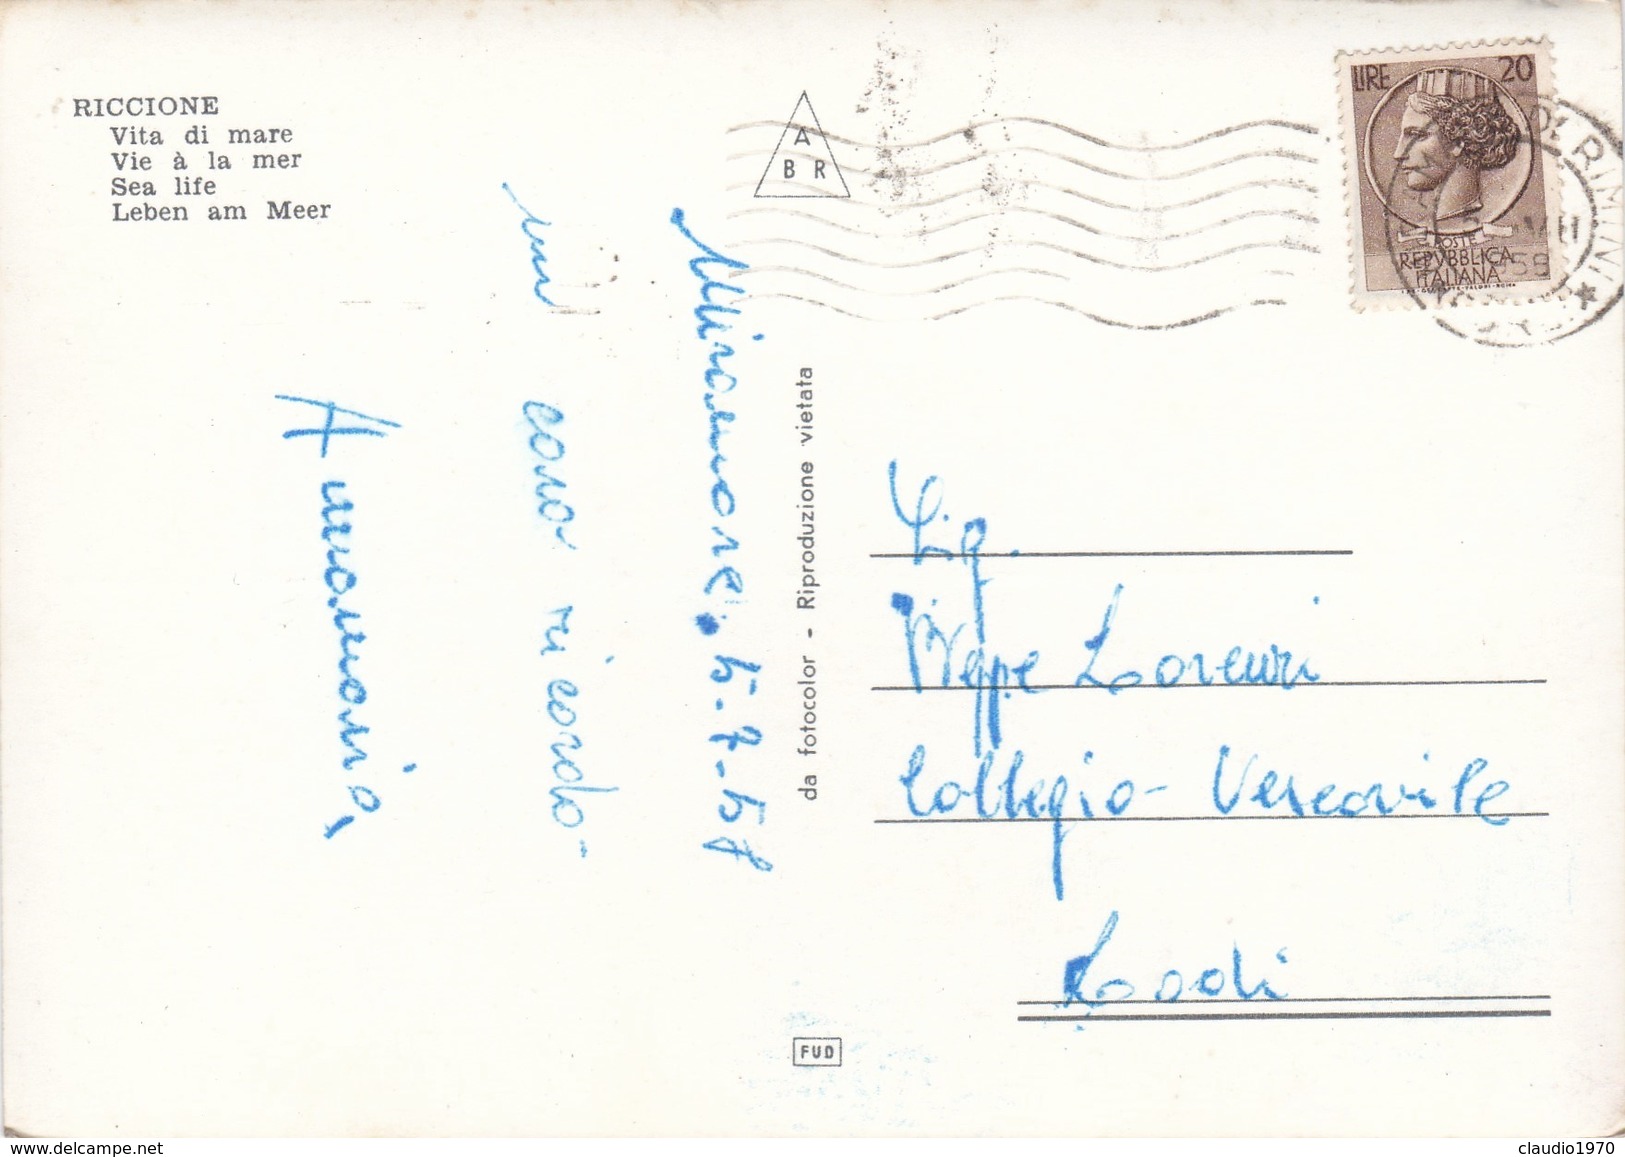 RICCIONE
Vita di mare
Vie à la mer
Sea life
Leben am Meer
A
B R
LIRE 20
POSTE
REPVBBLICA
ITALIANA
DI RIMINI
Miramare, 5-7-58
un caro ricordo-
da fotocolor - Riproduzione vietata
Sig.
Peppe Lorenzi
Collegio - Vescovile
Lodi
FUD
www.delcampe.net
claudio1970